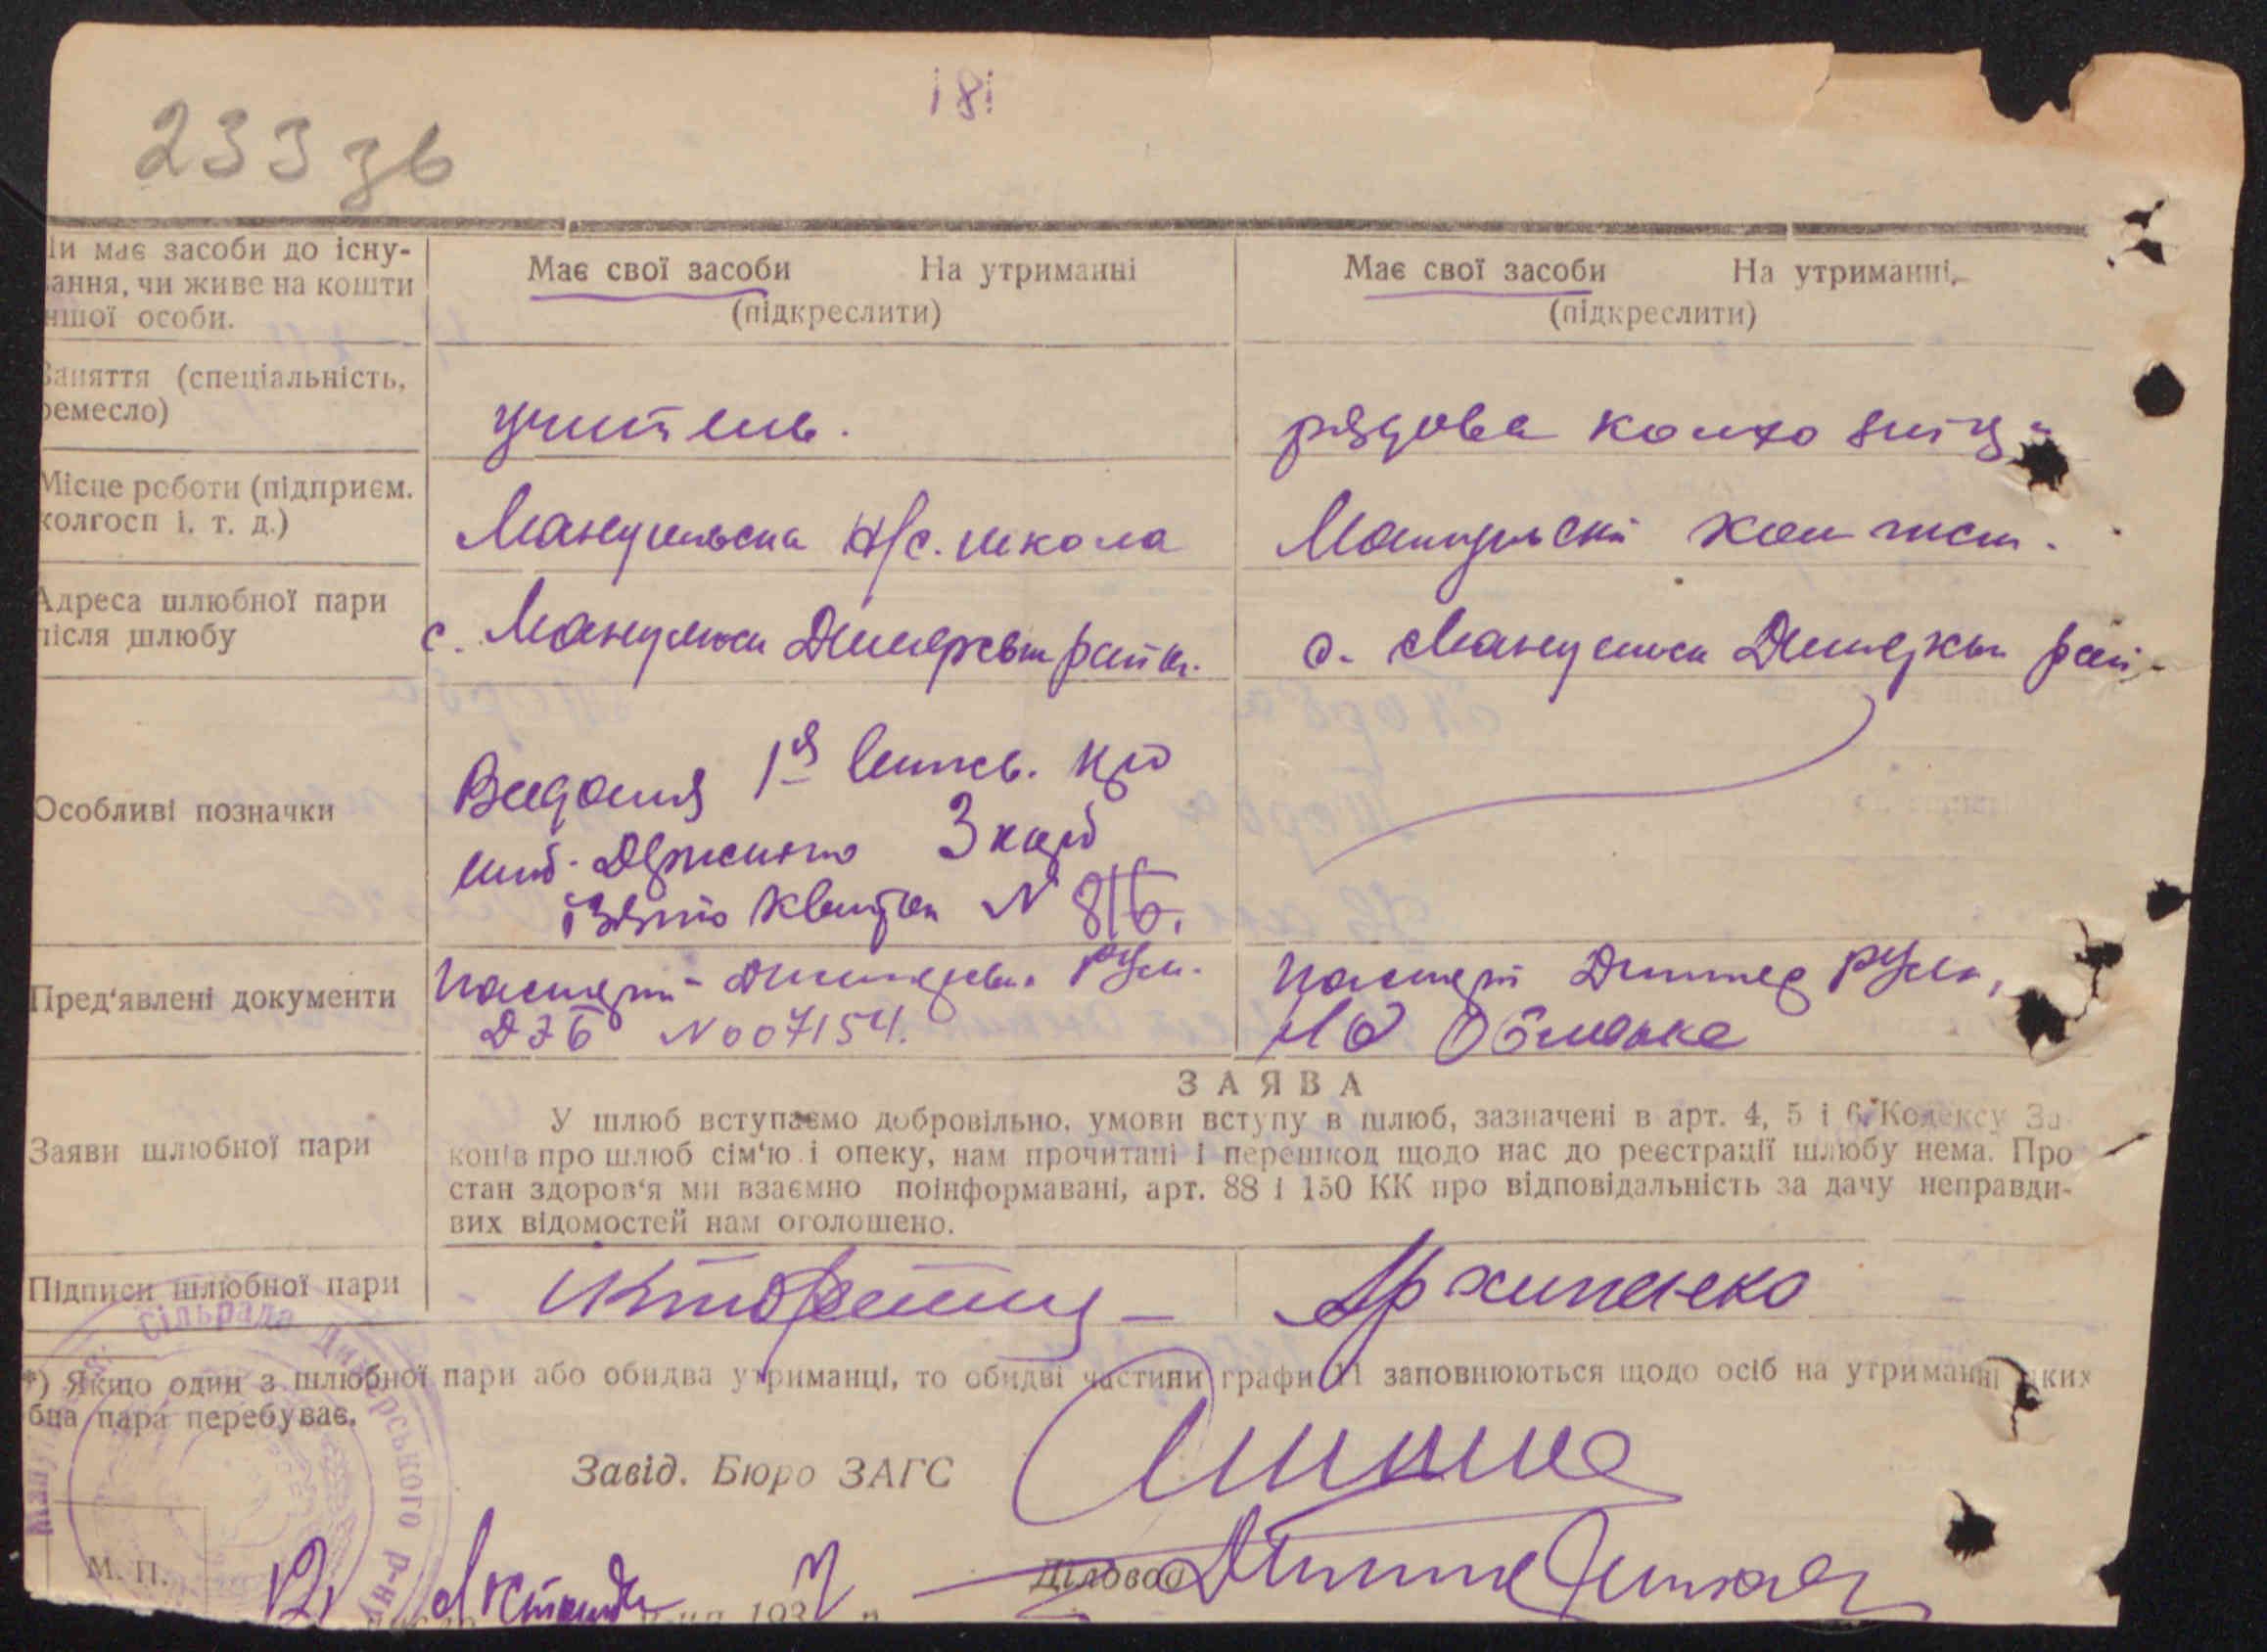 181
233 зв
и має засоби до існу-
ання, чи живе на кошти
ншої особи.
Має свої засоби На утриманні
(підкреслити)
Має свої засоби На утриманні,
(підкреслити)
Заняття (спеціальність,
ремесло)
учитель.
рядова колхозниця
Місце роботи (підприєм.
колгосп і. т. д.)
Мануильска н/с. школа
Мануильский
Адреса шлюбної пари
після шлюбу
с. Мануильск Димерськ район.
с. Мануильск Димерськ рай-
Особливі позначки
Видання 1й
3 карб
взято квитан N 816.
Пред'явлені документи
паспорт - Димерськ РУМ.
ДЗБ N007154.
паспорт Димер РУМ,
ЗАЯВА
Заяви шлюбної пари
У шлюб вступаємо добровільно, умови вступу в шлюб, зазначені в арт. 4, 5 і 6 Кодексу За
конів про шлюб сім'ю і опеку, нам прочитані і перешкод щодо нас до реєстрації шлюбу нема. Про
стан здоров'я ми взаємно поінформавані, арт. 88 і 150 КК про відповідальність за дачу неправди-
вих відомостей нам оголошено.
Підписи шлюбної пари
Архипенко
*) Якщо один з шлюбної пари або обидва утриманці, то обидві частини графи 11 заповнюються щодо осіб на утриманні яких
бна пара перебуває.
Завід. Бюро ЗАГС
сільрада Димерського р-ну
М. П.
Діловод
12 193 7 р